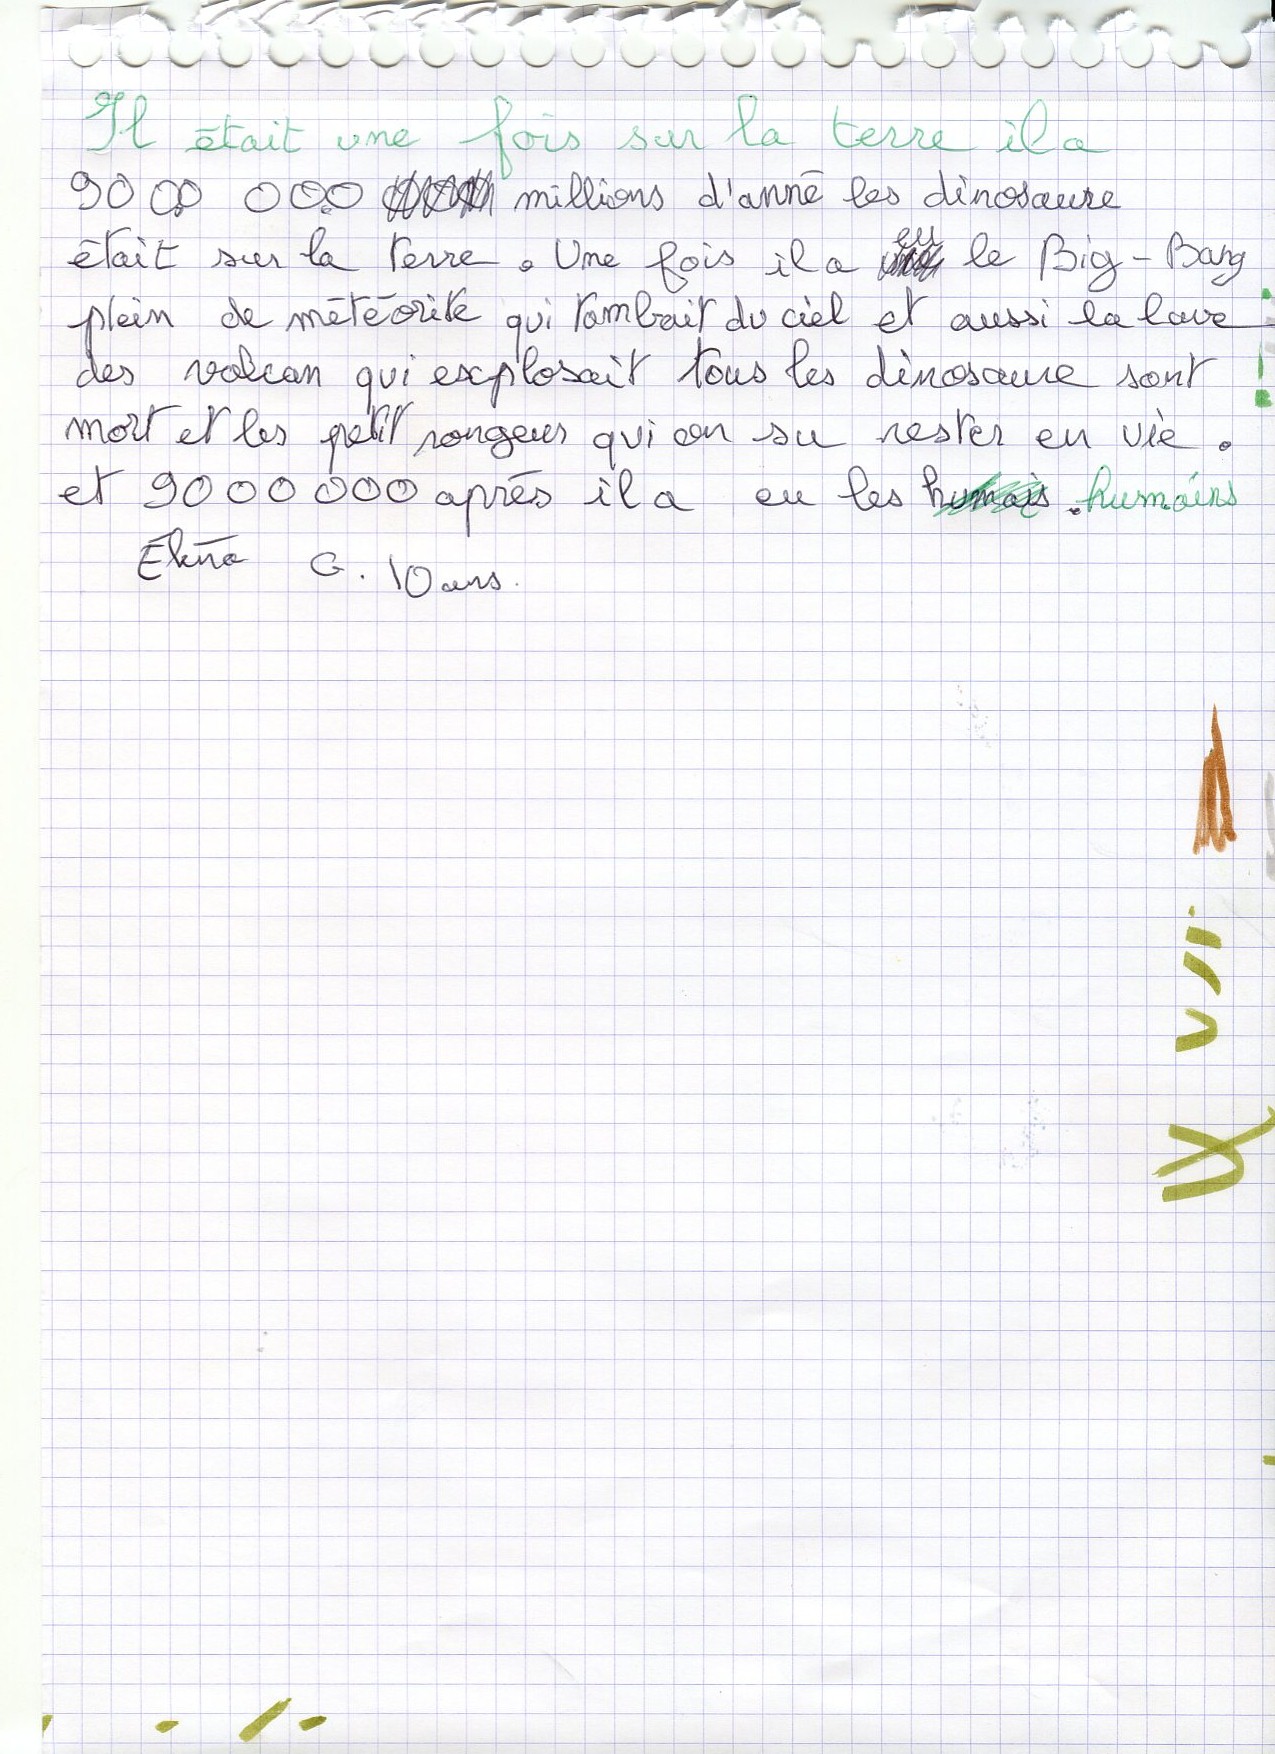 Il était une fois sur la terre il a
9000 000 millions d'anné les dinosaure
était sur la terre. Une fois il a eu le Big-Bang
plein de météorite qui tombait du ciel et aussi la lave
des volcan qui explosait tous les dinosaure sont
mort et les petit rongeurs qui on su rester en vie.
et 9000 000 après il a eu les humais. humains
G. 10 ans.